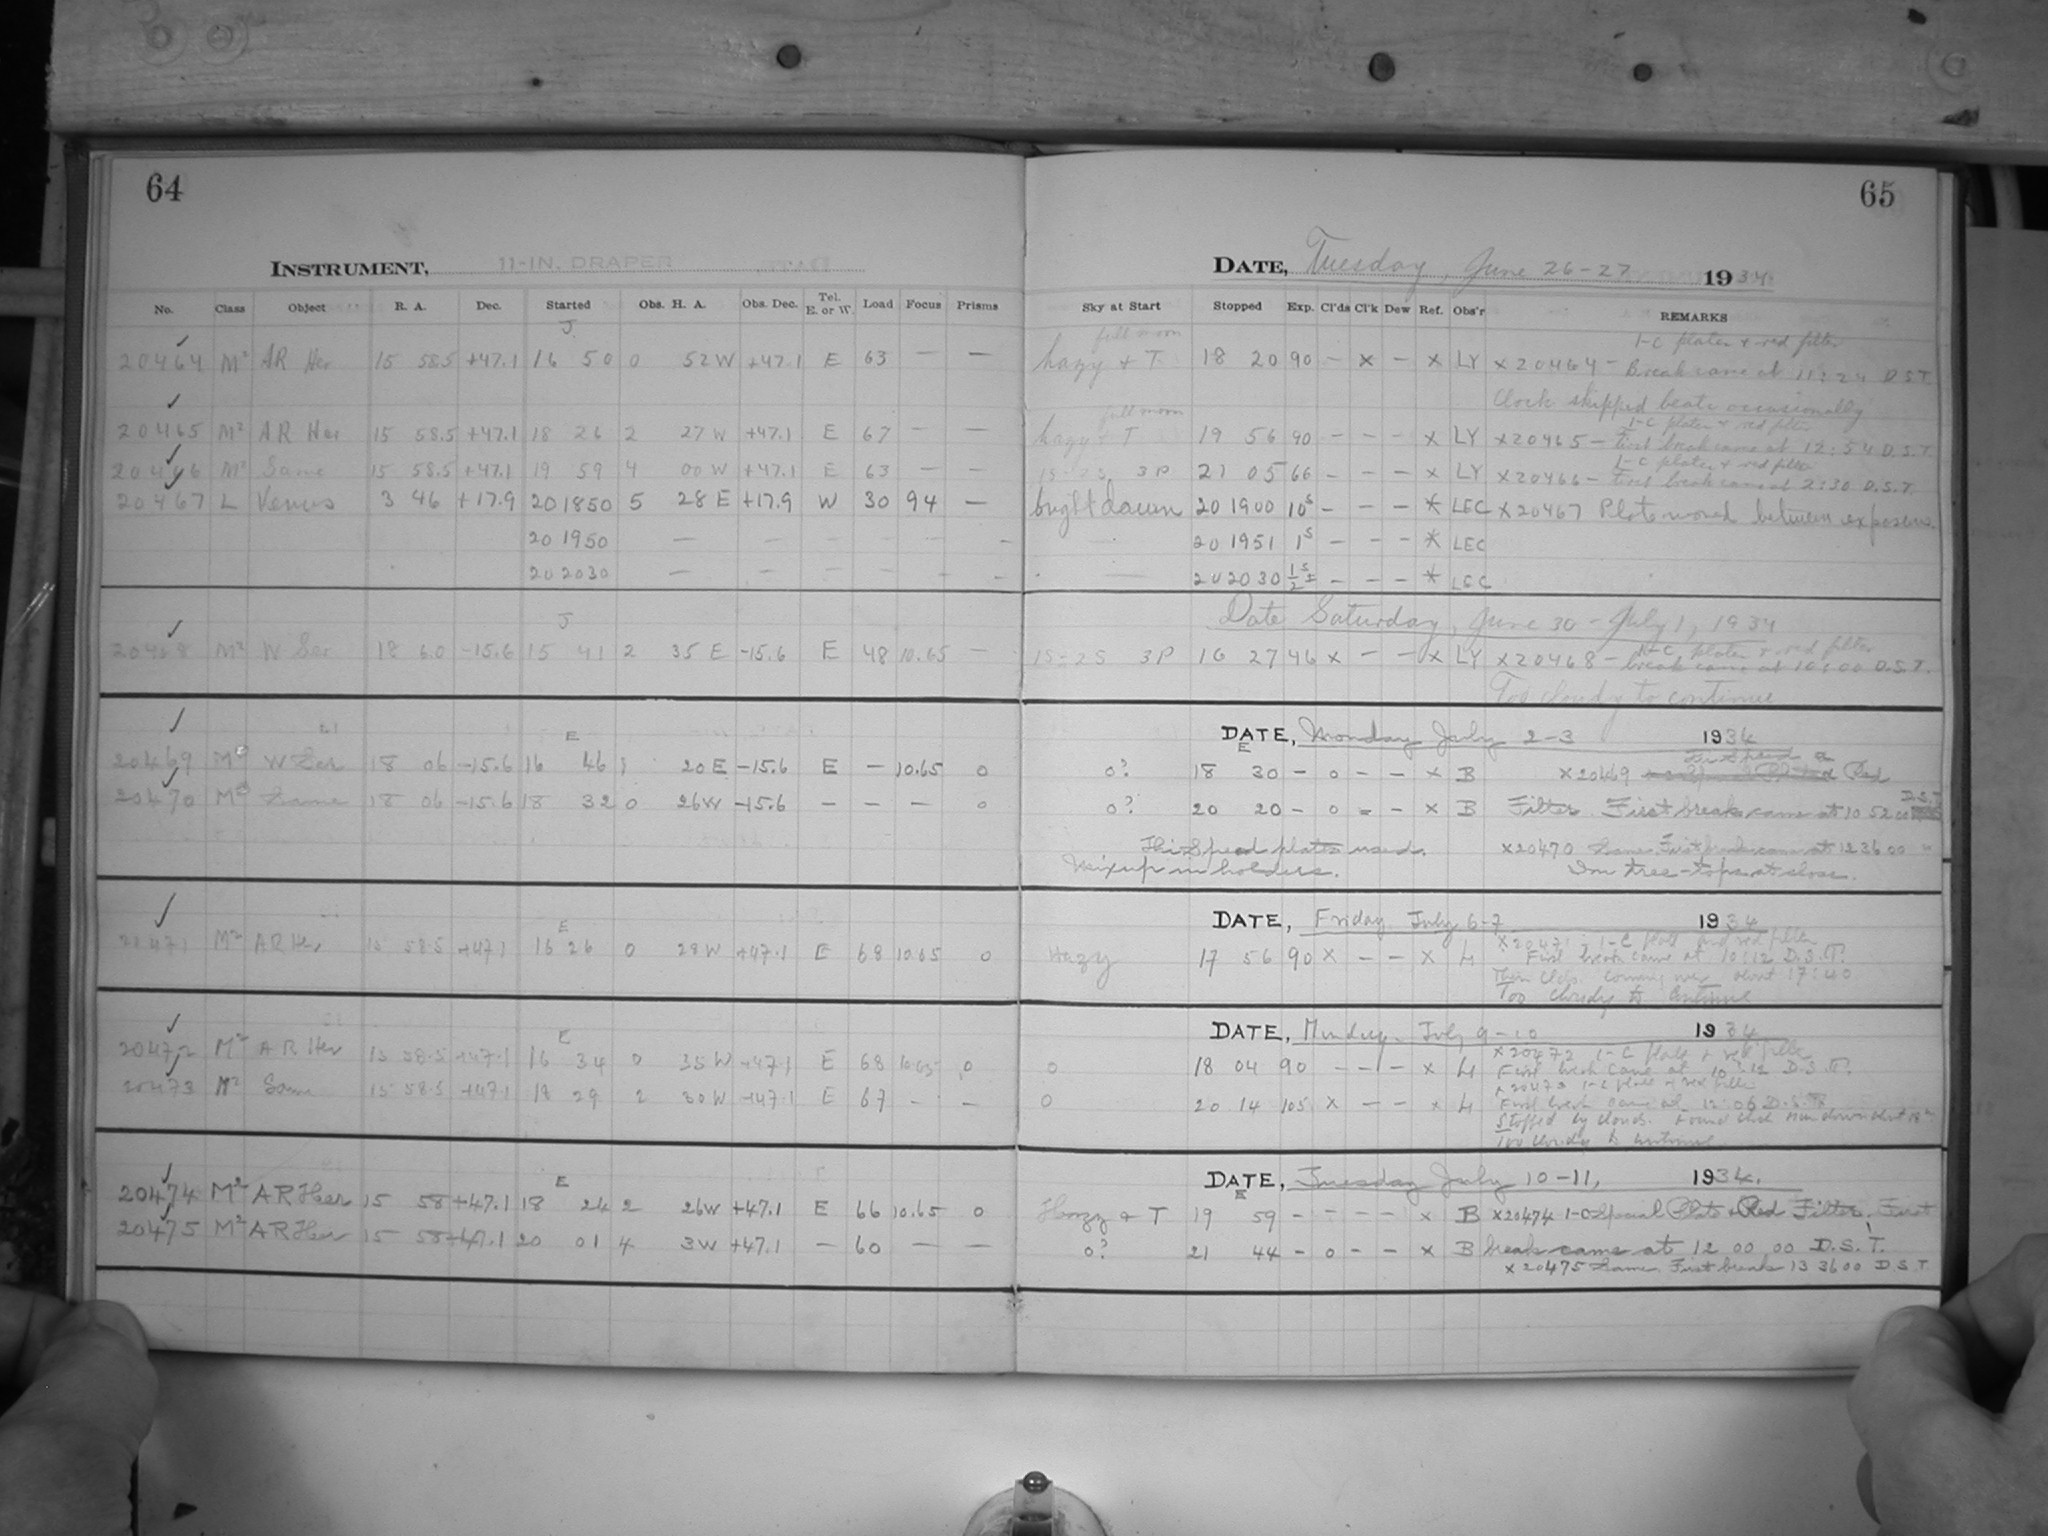 64
INSTRUMENT, 11-IN. DRAPER
No. Class Object R. A. Dec. Started Obs. H. A. Obs. Dec. Tel. E. or W. Load Focus Prisms
J
20464 M² AR Her 15 58.5 +47.1 16 50 0 52 W +47.1 E 63 — —
20465 M² AR Her 15 58.5 +47.1 18 26 2 27 W +47.1 E 67 — —
20466 M² Same 15 58.5 +47.1 19 59 4 00 W +47.1 E 63 — —
20467 L Venus 3 46 +17.9 20 18 50 5 28 E +17.9 W 30 94 —
20 19 50 — — — — — — —
20 20 30 — — — — — — —
J
20468 M² W Ser 18 6.0 -15.6 15 41 2 35 E -15.6 E 48 10.65 —
E
20469 M² W Ser 18 06 -15.6 16 46 1 20 E -15.6 E — 10.65 0
20470 M² Same 18 06 -15.6 18 32 0 26 W -15.6 — — — 0
E
21471 M² AR Her 15 58.5 +47.1 16 26 0 28 W +47.1 E 68 10.65 0
E
20472 M² AR Her 15 58.5 +47.1 16 34 0 35 W +47.1 E 68 10.65 0
20473 M² Same 15 58.5 +47.1 18 29 2 30 W +47.1 E 67 — —
E
20474 M² AR Her 15 58 +47.1 18 24 2 26 W +47.1 E 66 10.65 0
20475 M² AR Her 15 58 +47.1 20 01 4 3 W +47.1 — 60 — —
65
DATE, Tuesday, June 26-27 1934
Sky at Start Stopped Exp. Cl'ds Cl'k Dew Ref. Obs'r REMARKS
full moon 1-C plates & red filter
hazy & T 18 20 90 — x — x LY x20464 — Break came at 11:24 D.S.T.
Clock skipped beats occasionally
full moon 1-C plates & red filter
hazy & T 19 56 90 — — — x LY x20465 — First break came at 12:54 D.S.T.
1-C plates & red filter
1S-2S 3P 21 05 66 — — — x LY x20466 — First break came at 2:30 D.S.T.
bright dawn 20 19 00 10s — — — * LEC x20467 Plate moved between exposures
— 20 19 51 1s — — — * LEC
— 20 20 30 1/2s ± — — — * LEC
Date Saturday, June 30 - July 1, 1934
1-C plates & red filter
1S-2S 3P 16 27 46 x — — x LY x20468 — break came at 10:00 D.S.T.
Too cloudy to continue
DATE, Monday July 2-3 1934
E Hi Speed
0? 18 30 — 0 — — x B x20469 Red
0? 20 20 — 0 — — x B Filter. First break came at 10 52 00 D.S.T.
Hi Speed plates used. x20470 Same. First break came at 12 36 00 "
Mixup in holders. In tree-tops at close.
DATE, Friday July 6-7 1934
x20471; 1-C plate and red filter
Hazy 17 56 90 x — — x H First break came at 10:12 D.S.T.
Thin clds. coming over about 17:40
Too cloudy to continue
DATE, Monday July 9-10 1934
x20472 1-C plate & red filter
0 18 04 90 — — — x H First break came at 10:12 D.S.T.
x20473 1-C plate & red filter
0 20 14 105 x — — x H First break came at 12:06 D.S.T.
Stopped by clouds. Found clock run down about 18h
Too cloudy to continue
DATE, Tuesday July 10-11, 1934.
E
Hazy & T 19 59 — — — — x B x20474 1-C Special Plate & Red Filter, First
0? 21 44 — 0 — — x B break came at 12 00 00 D.S.T.
x20475 Same. First break 13 36 00 D S T.